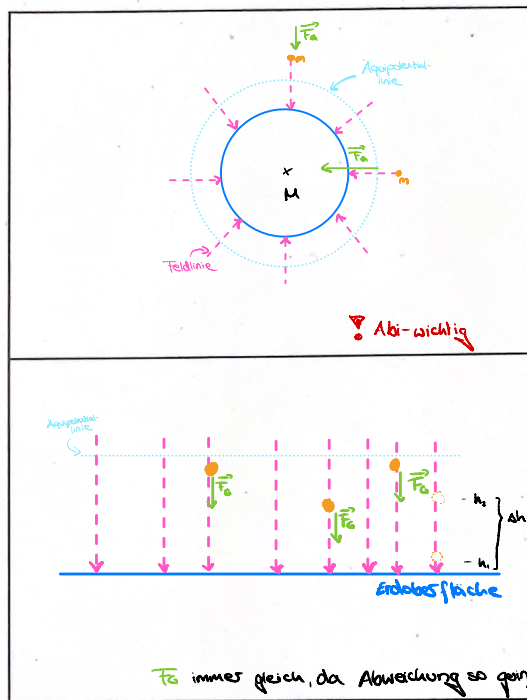 F_G
m
Äquipotential-
linie
F_G
m
M
Feldlinie
! Abi-wichtig
Äquipotential-
linie
F_G
F_G
F_G
h₂
Δh
h₁
Erdoberfläche
F_G immer gleich, da Abweichung so